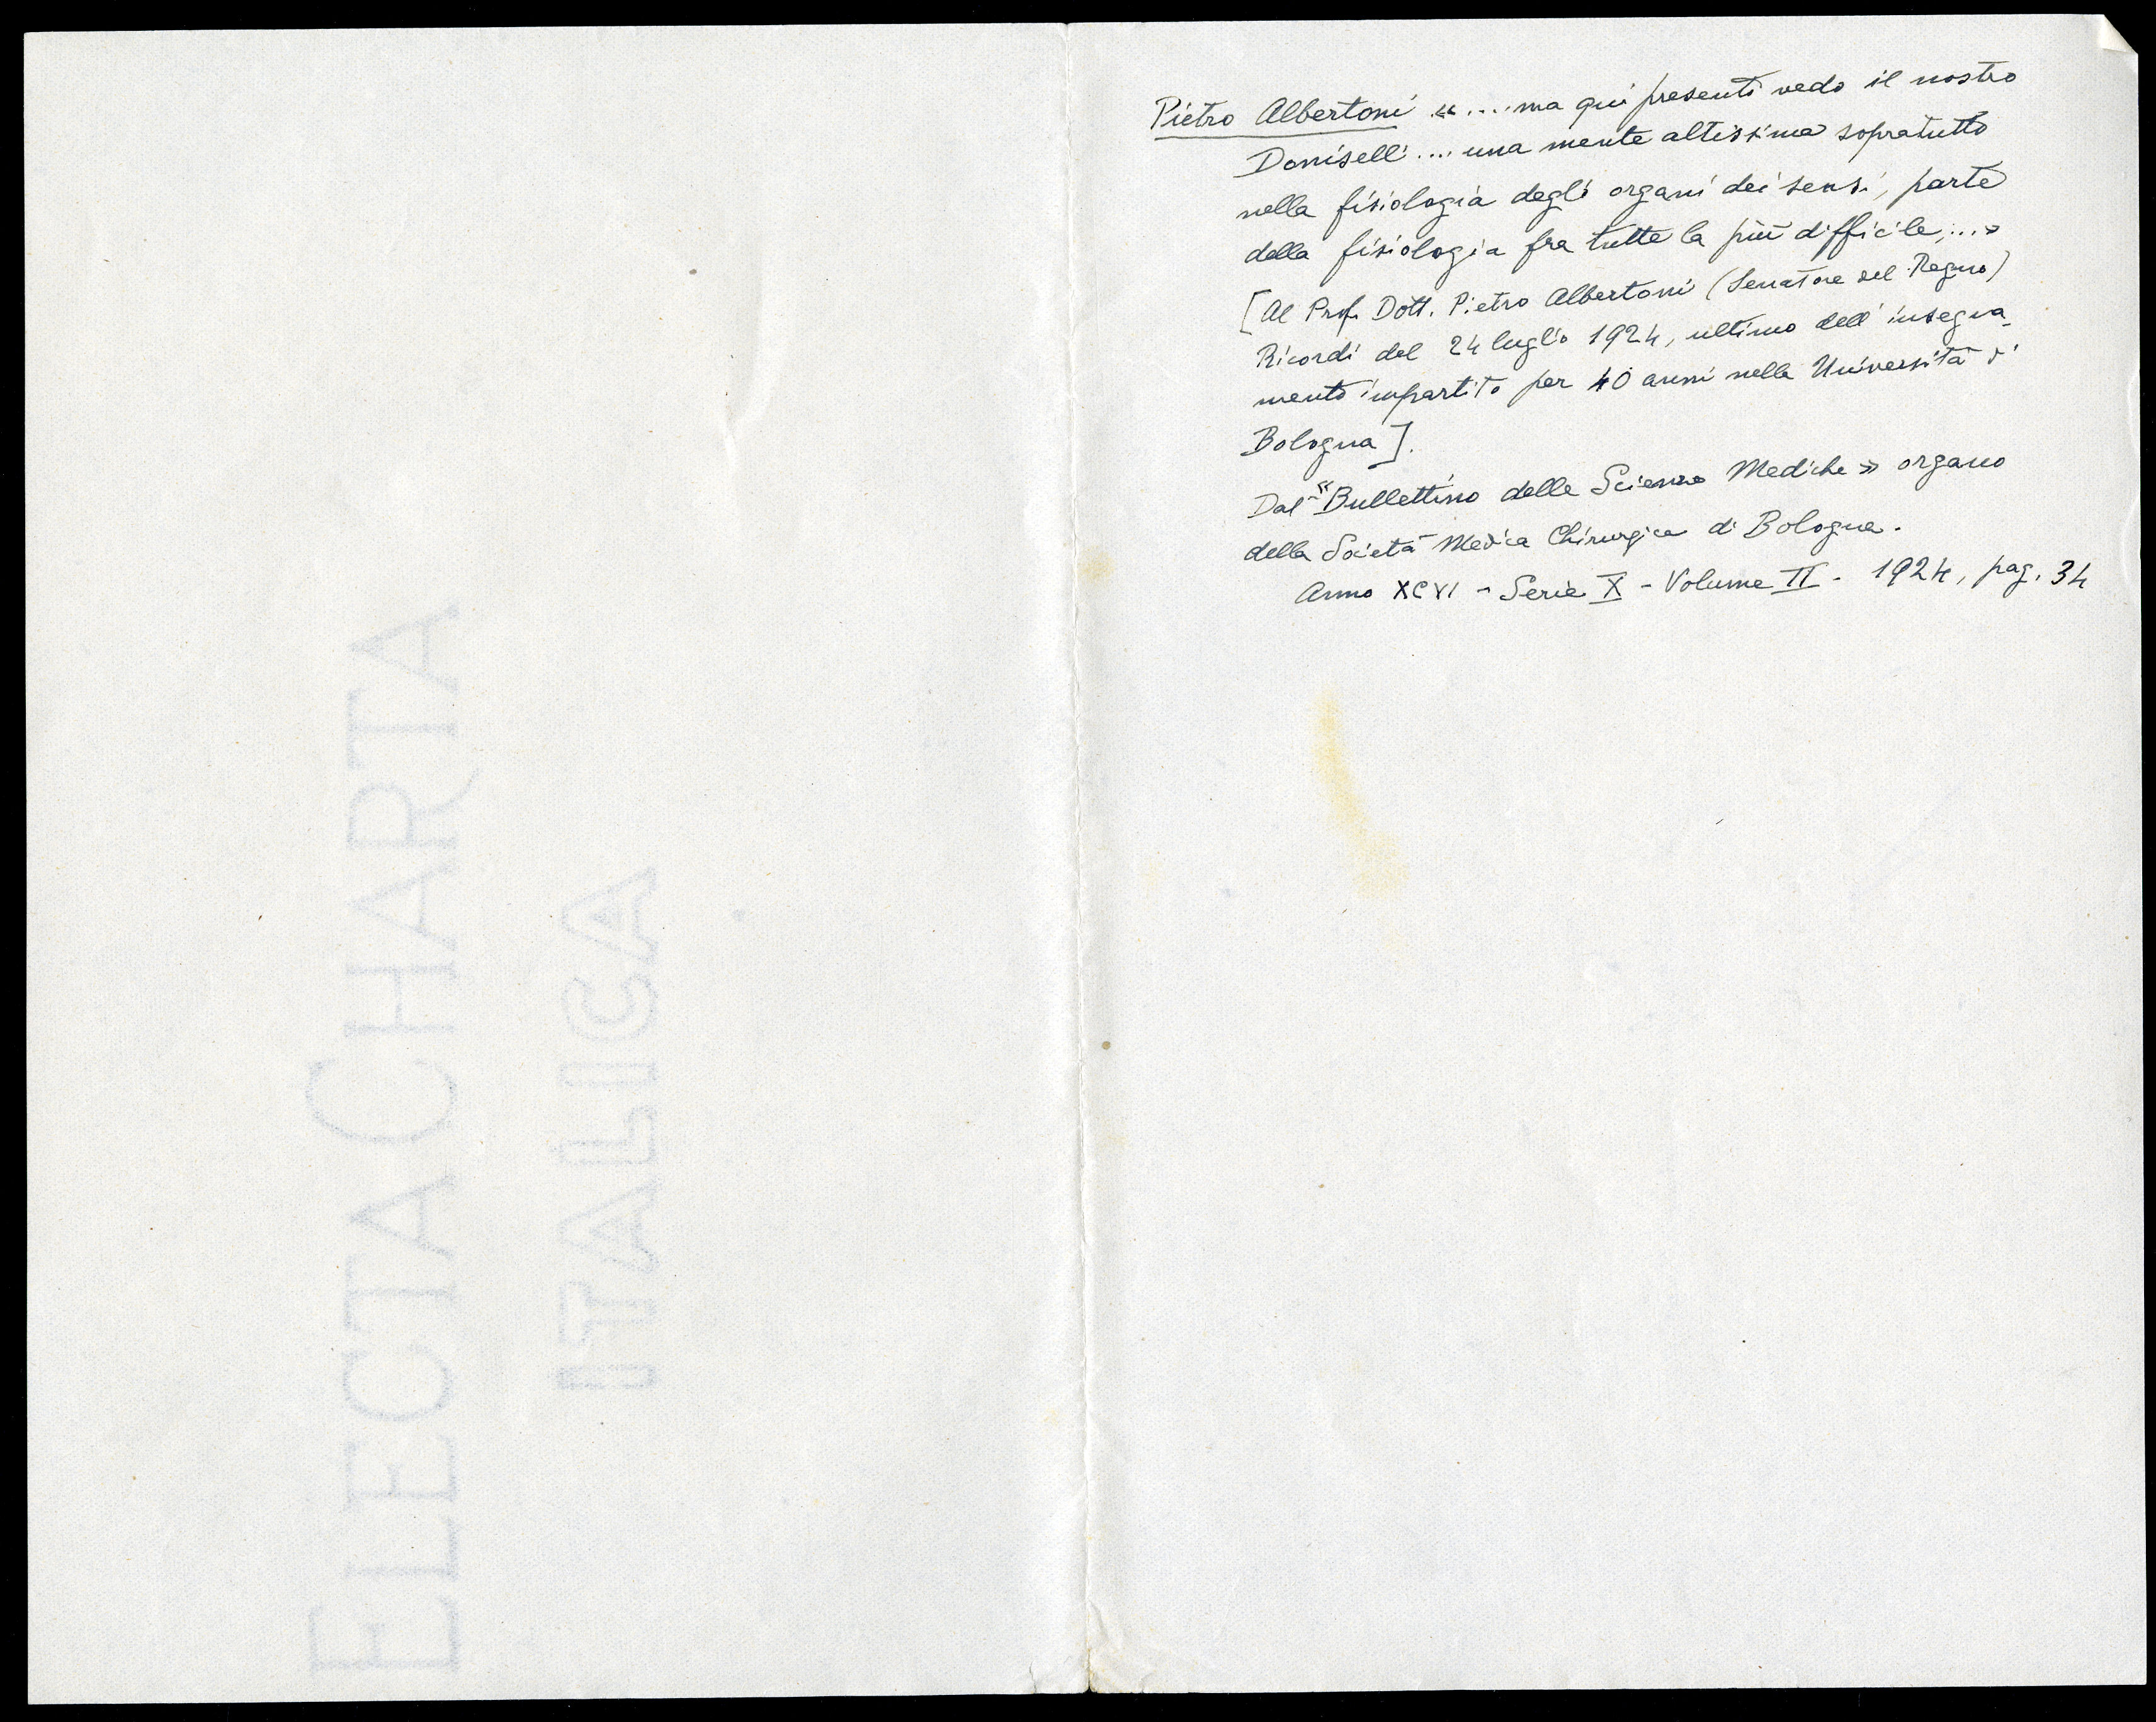 ELECTA CHARTA
ITALICA
Pietro Albertoni «....ma qui presenti vedo il nostro
Doniselli.... una mente altissima sopratutto
nella fisiologia degli organi dei sensi, parte
della fisiologia fra tutte la più difficile,...»
[Al Prof. Dott. Pietro Albertoni (Senatore del Regno)
Ricordi del 24 luglio 1924, ultimo dell'insegna-
mento impartito per 40 anni nella Università di
Bologna].
Dal «Bullettino delle Scienze Mediche» organo
della Società Medica Chirurgica di Bologna.
Anno XCVI - Serie X - Volume II - 1924, pag. 34